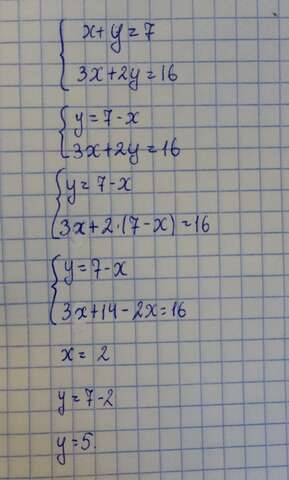 x+y=7
3x+2y=16
y=7-x
3x+2y=16
y=7-x
3x+2·(7-x)=16
y=7-x
3x+14-2x=16
x=2
y=7-2
y=5.